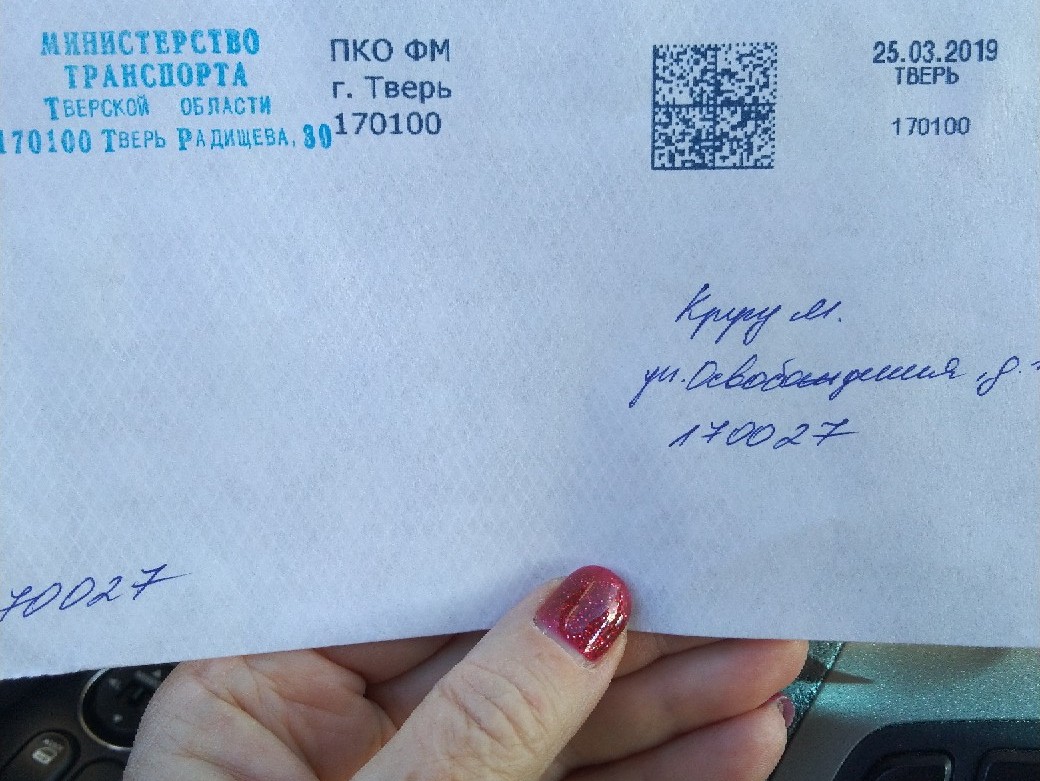 МИНИСТЕРСТВО
ТРАНСПОРТА
ТВЕРСКОЙ ОБЛАСТИ
170100 ТВЕРЬ РАДИЩЕВА, 30
ПКО ФМ
г. Тверь
170100
25.03.2019
ТВЕРЬ
170100
М.
ул. Освобождения, д.
170027
70027